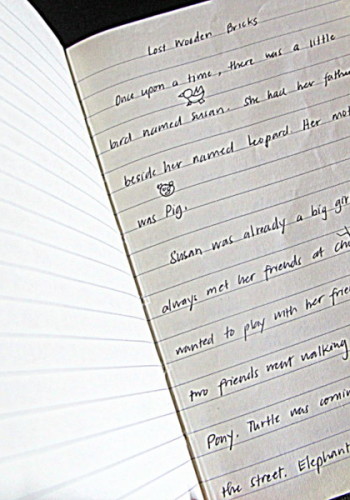 Lost Wooden Bricks
Once upon a time, there was a little
bird named Susan. She had her
beside her named Leopard. Her
was Pig.
Susan was already a big
always met her friends at
wanted to play with her
two friends went walking
Pony. Turtle was
the street. Elephant